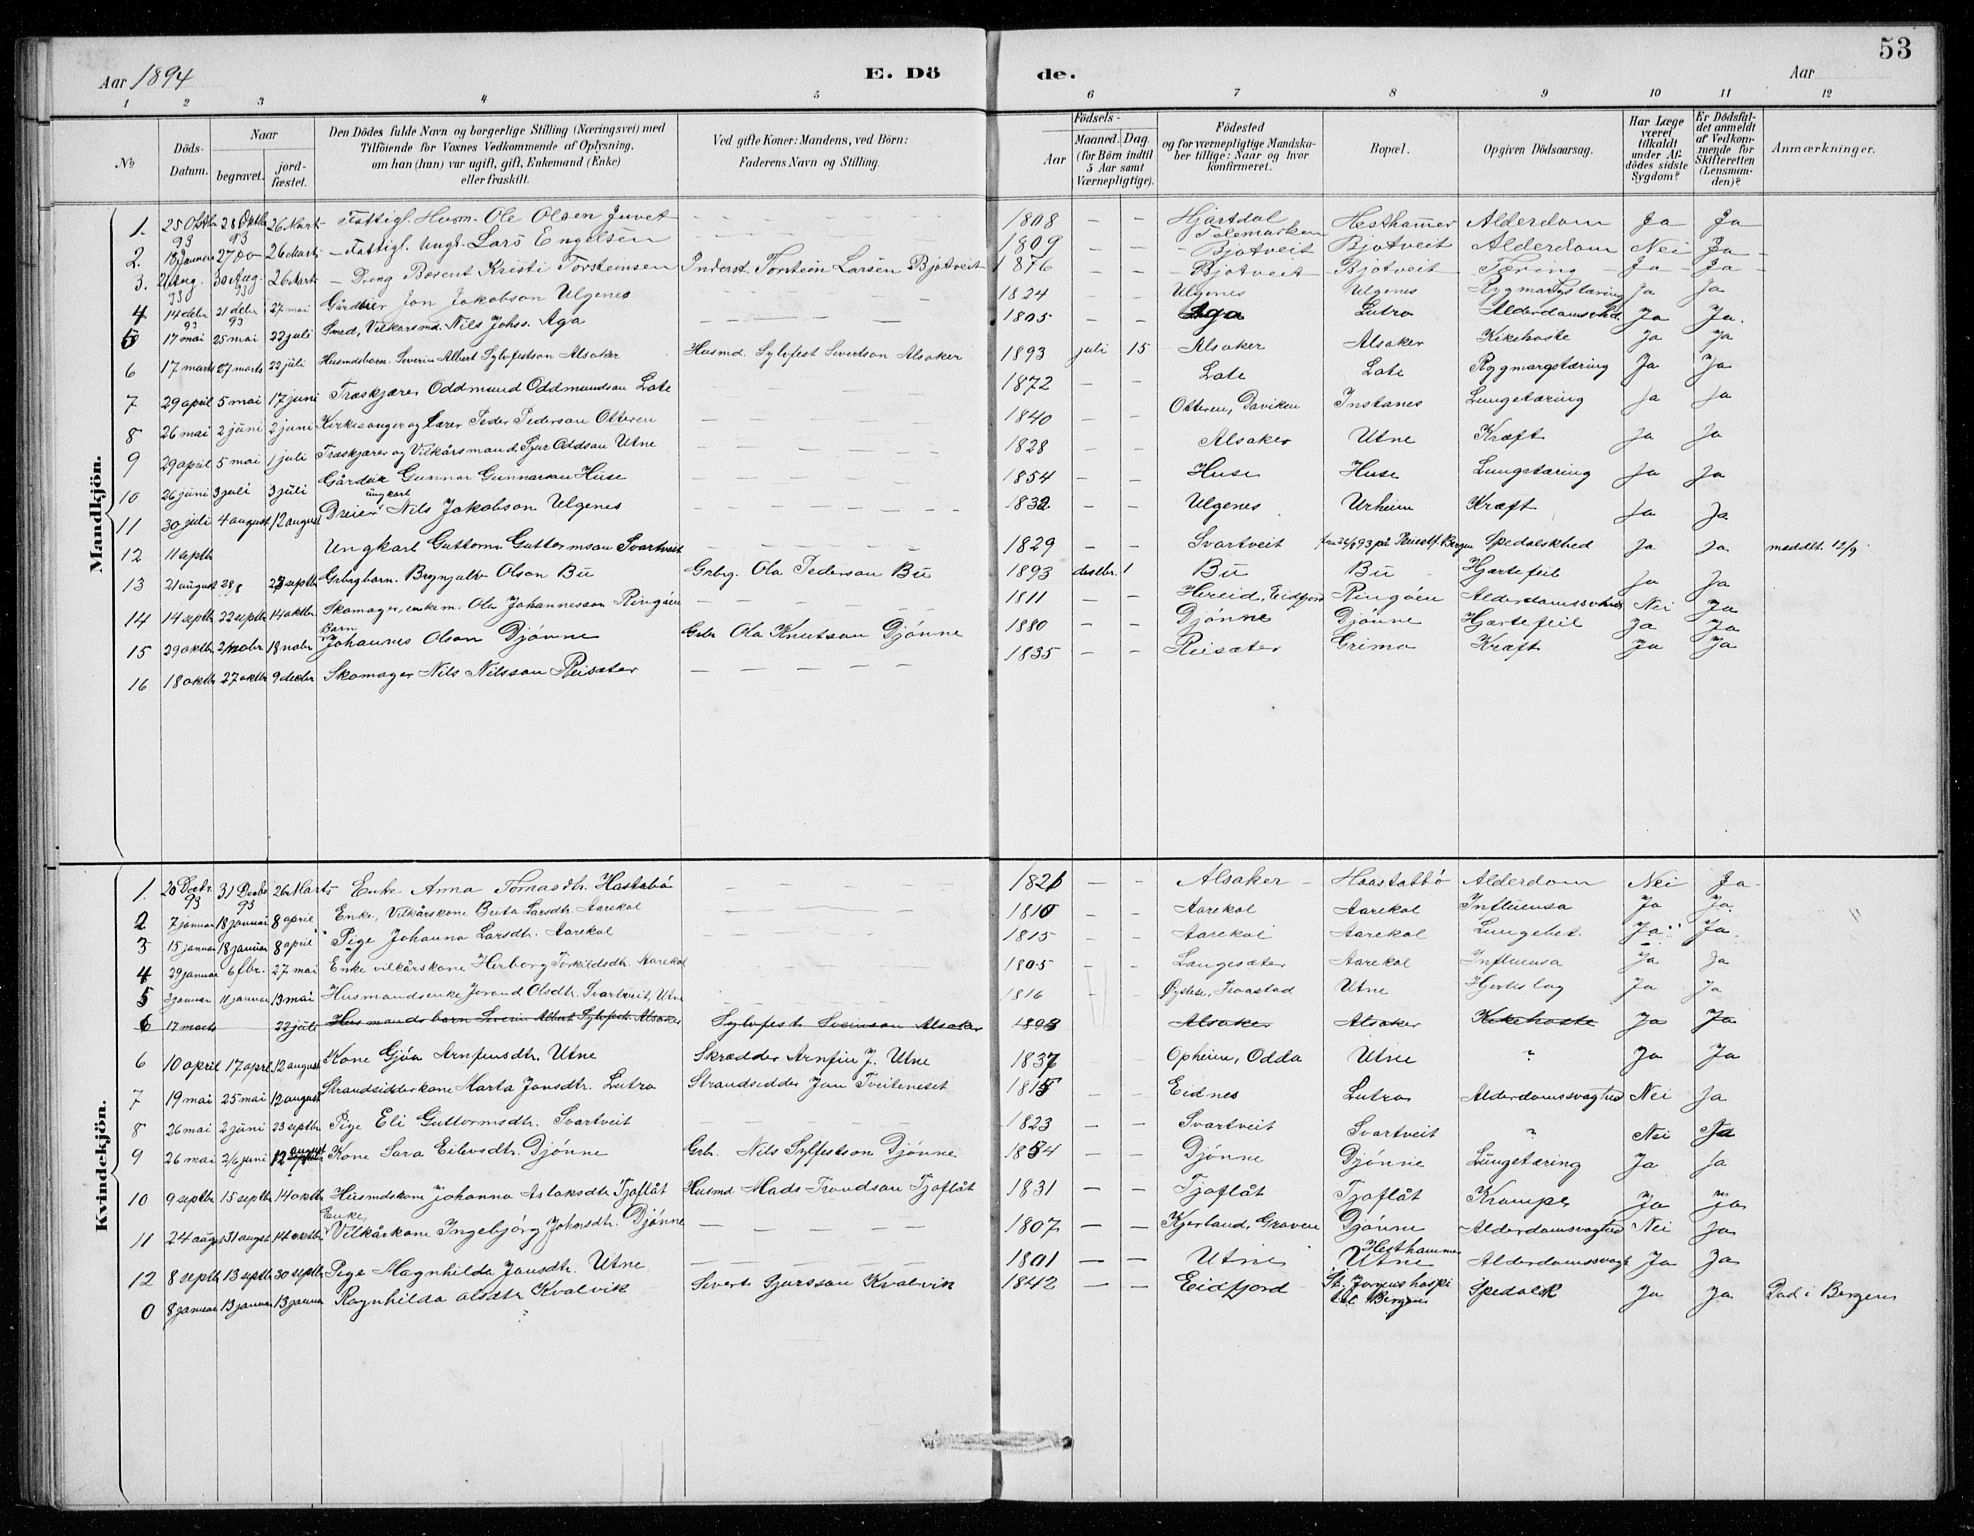 53
Aar 1894 E. Dö de. Aar
1 2 3 4 5 6 7 8 9 10 11 12
No Döds-Datum. Naar begravet. jord-fæstet. Den Dödes fulde Navn og borgerlige Stilling (Næringsvei) med Tilföiende for Voxnes Vedkommende af Oplysning, om han (hun) var ugift, gift, Enkemand (Enke) eller fraskilt. Ved gifte Koner: Mandens, ved Börn: Faderens Navn og Stilling. Födsels- Aar Maaned. Dag. (for Börn indtil 5 Aar samt Værnepligtige). Födested og for værnepligtige Mandska-ber tillige: Naar og hvor konfirmeret. Bopæl. Opgiven Dödsaarsag. Har Læge været tilkaldt under Af-dödes sidste Sygdom? Er Dödsfal-det anmeldt af Vedkom-mende for Skifteretten (Lensman-den)? Anmærkninger.
Mandkjön.
1. 25 Oktbr 93 28 Oktbr 93 26 Marts Fattigl. Husm. Ole Olsen Juvet — 1808 — — Hjartdal Telemarken Hesthamer Alderdom Ja Ja
2. 26 Marts Fattigl. Ungk. Lars Engelsen — 1809 — — Bjotveit Bjotveit Alderdom Nei Ja
3. 21 Aug. 93 30 Aug. 93 26 Marts Dreng Berent Kristi Torsteinsen Inderst Torstein Larsen Bjotveit 1876 — — Bjotveit Bjotveit Tæring Ja Ja
4 14 debr 93 21 debr 93 27 mai Gårdbrer Jon Jakobson Ulgenes 1824 — — Ulgenes Ulgenes Rygmargstæring Ja Ja
5 17 mai 25 mai 22 juli Smed, Vilkårsmd. Nils Johs. Aga — 1805 — — Aga Lutro Ja Ja.
6 17 marts 27 marts 22 juli Husmdsbarn Severin Albert Sylfestson Alsaker Husmd. Sylvfest Sivertson Alsaker 1893 juli 15 Alsaker Alsaker Kikehoste Ja Ja
7 29 april 5 mai 17 juni Træskjærer Oddmund Oddmundson Lote 1872 — — Lote Lote Rygmargstæring Ja Ja
8 26 mai 2 juni 2 juni Kirkesanger og Lærer Peder Pederson Otteren — 1840 — — Otteren, Daviken Instanes Lungetæring Ja Ja
9 29 april 5 mai 1 juli Træskjærer og Vilkårsmand Sjur Oddson Utne — 1828 — — Alsaker Utne Kræft Ja Ja
10 26 juni 3 juli 3 juli Gårdbr Gunnar Gunnarson Huse — 1854 — — Huse Huse Lungetæring Ja Ja
11 30 juli 4 august 12 august Dreier ungkarl Nils Jakobson Ulgenes — 1832 — — Ulgenes Urheim Kræft Ja Ja
12 11 septbr Ungkarl Guttorm Guttormson Svartveit 1829 — — Svartveit på Pleiestf. Bergen Spedalskhed Ja Ja meddelt 12/9.
13 21 august 28/8 23 septbr Grbrgbarn. Brynjulv Olson Bu Grbrg. Ola Pederson Bu 1893 desbr. 1 Bu Bu Hjertefeil Ja Ja
14 14 septbr 22 septbr 14 oktbr Skomager, enkem. Ole Johannesson Ringöen — 1811 — — Hereid, Eidfjord Ringöen Nei Ja
15 29 oktbr 2 nobr 18 nobr Barn Johannes Olson Djönne Grbr Ola Knutson Djönne 1880 — — Djönne Djönne Hjertefeil Ja Ja
16 18 oktbr 27 oktbr 9 decbr Skomager Nils Nilsson Reisæter — 1835 — — Reisæter Grimo Kræft Ja Ja
Kvindekjön.
1. 26 Marts Enke Anna Tomasdtr. Hastabö — 1821 — — Alsaker Haastabbö Alderdom Nei Ja
2 7 januar 18 januar 8 april Enke, Vilkårskone Brita Larsdtr. Aarekol — 1810 — — Aarekol Aarekol Influensa Ja Ja
3 15 januar 18 januar 8 april Pige Johanna Larsdtr. Aarekol — 1815 — — Aarekol Aarekol Lungebet. Ja Ja
4 29 januar 6 fbr. 27 mai Enke vilkårskone Herborg Torkildsdtr. Aarekol 1805 — — Langesæter Aarekol Influensa Ja Ja
5 3 januar 11 januar 13 mai Husmandsenke Jorand Olsdtr. Svartveit, Utne 1816 Utne Ja Ja
6 17 marts 22 juli Husmandsbarn Severin Albert Sylvfestr. Alsaker Sylvfest Alsaker 1893 Alsaker Alsaker Kikehoste Ja Ja
6 10 april 17 april 12 august Kone Gjöa Arnfinsdtr. Utne Skrædder Arnfin J. Utne 1837 Opheim, Odda Utne " Ja Ja
7 19 mai 25 mai 12 august Strandsidderkone Marta Jonsdtr. Lutro Strandsidder Jon Tveiteneset 1815 Eidnes Lutro Alderdomssvaghed Nei Ja
8 26 mai 2 juni 23 septbr Pige Eli Guttormsdtr. Svartveit — 1823 — — Svartveit Svartveit " Nei Ja
9 26 mai 2/6 juni 12 august Kone Sara Eilevsdtr. Djönne Grbr. Nils Sylfestson Djönne 1854 — — Djönne Djönne Lungetæring Ja Ja
10 9 septbr 15 septbr 14 oktbr Husmdskone Johanna Aslaksdtr Tjoflåt Husmd Mads Trondson Tjoflåt 1831 — — Tjoflåt Tjoflåt Krampe Ja Ja
11 24 augst 31 augst 14 oktbr Enke Vilkårkone Ingebjörg Johnsdtr. Djönne — 1807 — — Kjerland, Graven Djönne Alderdomsvaghed Nei Ja
12 8 septbr 13 septbr 30 septbr Pige Magnhilda Jonsdtr. Utne — 1801 — — Utne Hesthammer Utne Alderdomssvagh Ja Ja
0 8 januar 13 januar 13 januar Ragnhilda Olsdtr Kvalvik Sivert Gjursson Kvalvik 1842 — — Eidfjord St. Jörgens hospital Bergen Spedalsk Ja Ja Död i Bergen